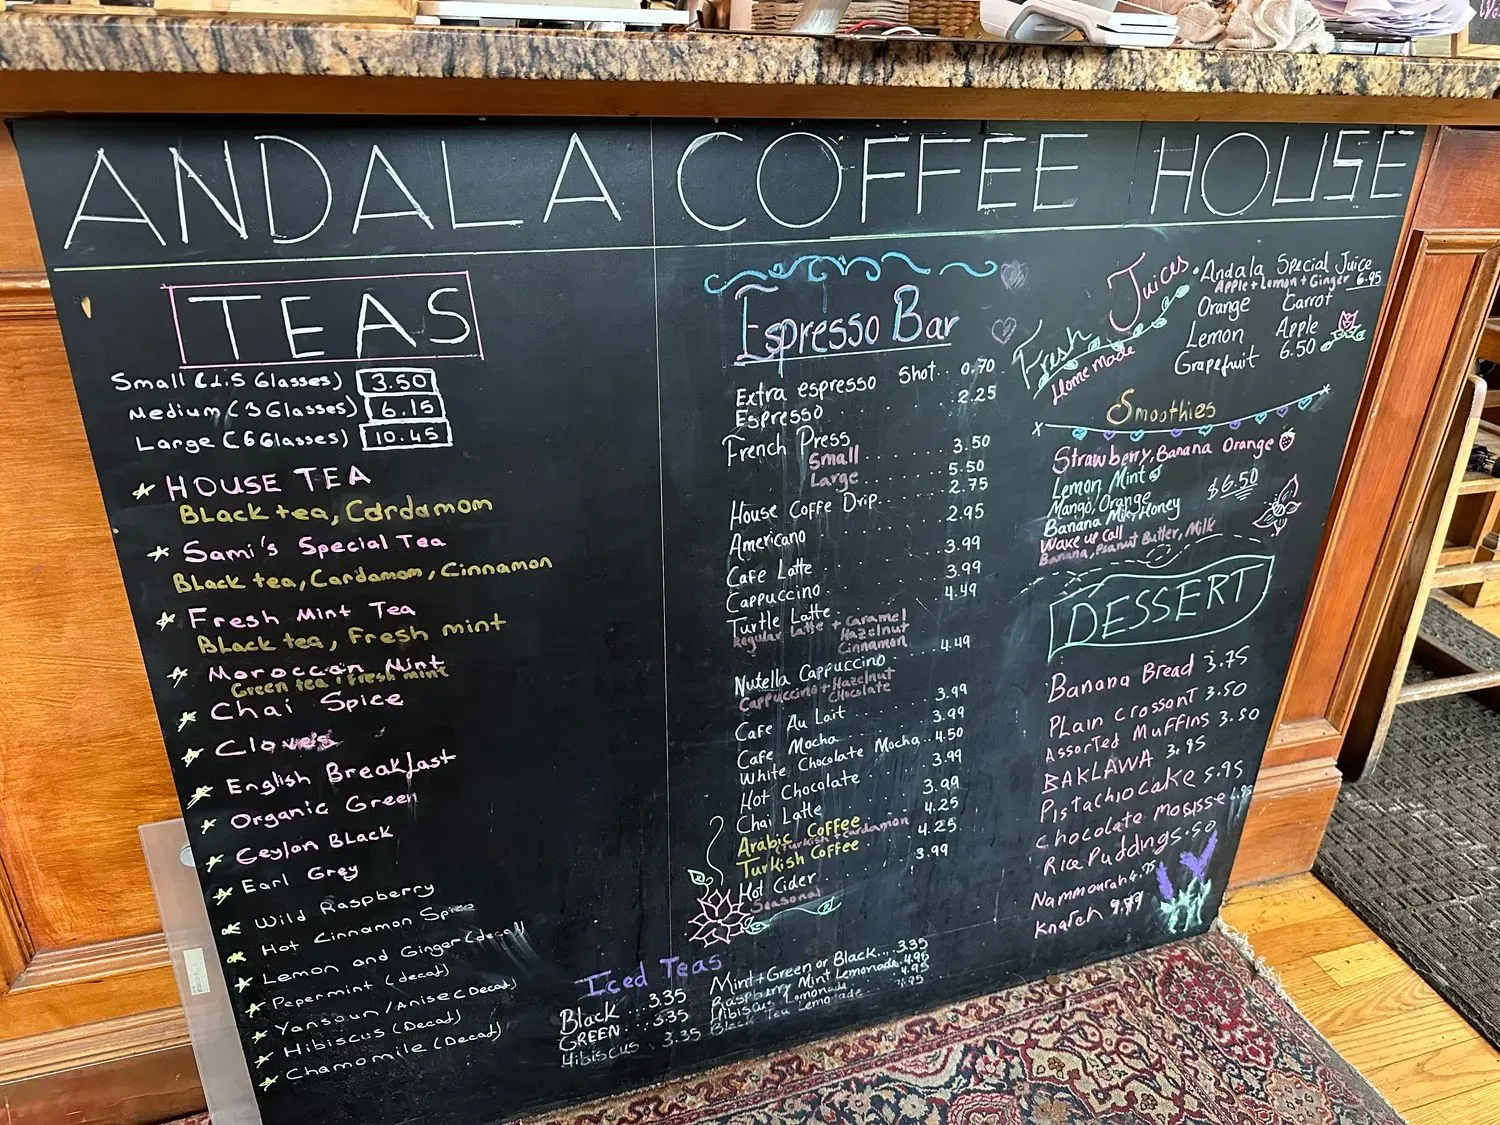 ANDALA COFFEE HOUSE
TEAS
Small (1.5 Glasses) 3.50
Medium (3 Glasses) 6.15
Large (6 Glasses) 10.45
HOUSE TEA
Black tea, Cardamom
Sami's Special Tea
Black tea, Cardamom, Cinnamon
Fresh Mint Tea
Black tea, Fresh mint
Moroccan Mint
Green tea, fresh mint
Chai Spice
Cloves
English Breakfast
Organic Green
Ceylon Black
Earl Grey
Wild Raspberry
Hot Cinnamon Spice
Lemon and Ginger (decaf)
Pepermint (decaf)
Yansoun/Anise (Decaf)
Hibiscus (Decaf)
Chamomile (Decaf)
Espresso Bar
Extra espresso Shot.. 0.70
Espresso . . . . 2.25
French Press
Small . . . . 3.50
Large . . . . 5.50
House Coffe Drip . . . 2.75
Americano . . . . 2.95
Cafe Latte . . . . 3.99
Cappuccino . . . . 3.99
Turtle Latte . . . . 4.49
Regular Latte + Caramel
Hazelnut
Cinnamon
Nutella Cappuccino 4.49
Cappuccino + Hazelnut
Chocolate
Cafe Au Lait . . . . 3.99
Cafe Mocha . . . . 3.99
White Chocolate Mocha.. 4.50
Hot Chocolate . . . . 3.99
Chai Latte . . . . 3.99
Arabic Coffee . . . 4.25
(Turkish + Cardamon
Turkish Coffee . . . 4.25
Hot Cider . . . . 3.99
Seasonal
Iced Teas
Black ...3.35
GREEN ...3.35
Hibiscus . 3.35
Mint+Green or Black...3.35
Raspberry Mint Lemonade.4.95
Hibiscus Lemonade...4.95
Black Tea Lemonade 4.95
Fresh Juices
Home made
Andala Special Juice
Apple + Lemon + Ginger 6.95
Orange Carrot
Lemon Apple
Grapefruit 6.50
Smoothies
Strawberry, Banana Orange
Lemon Mint
Mango, Orange $6.50
Banana Milk, Honey
Wake up Call
Banana, Peanut Butter, Milk
DESSERT
Banana Bread 3.75
PLain Crossant 3.50
Assorted Muffins 3.50
BAKLAWA 3.95
Pistachio cake 5.95
Chocolate Mosisse
Rice Pudding 5.50
Nammourah 4.75
Knafeh 9.99